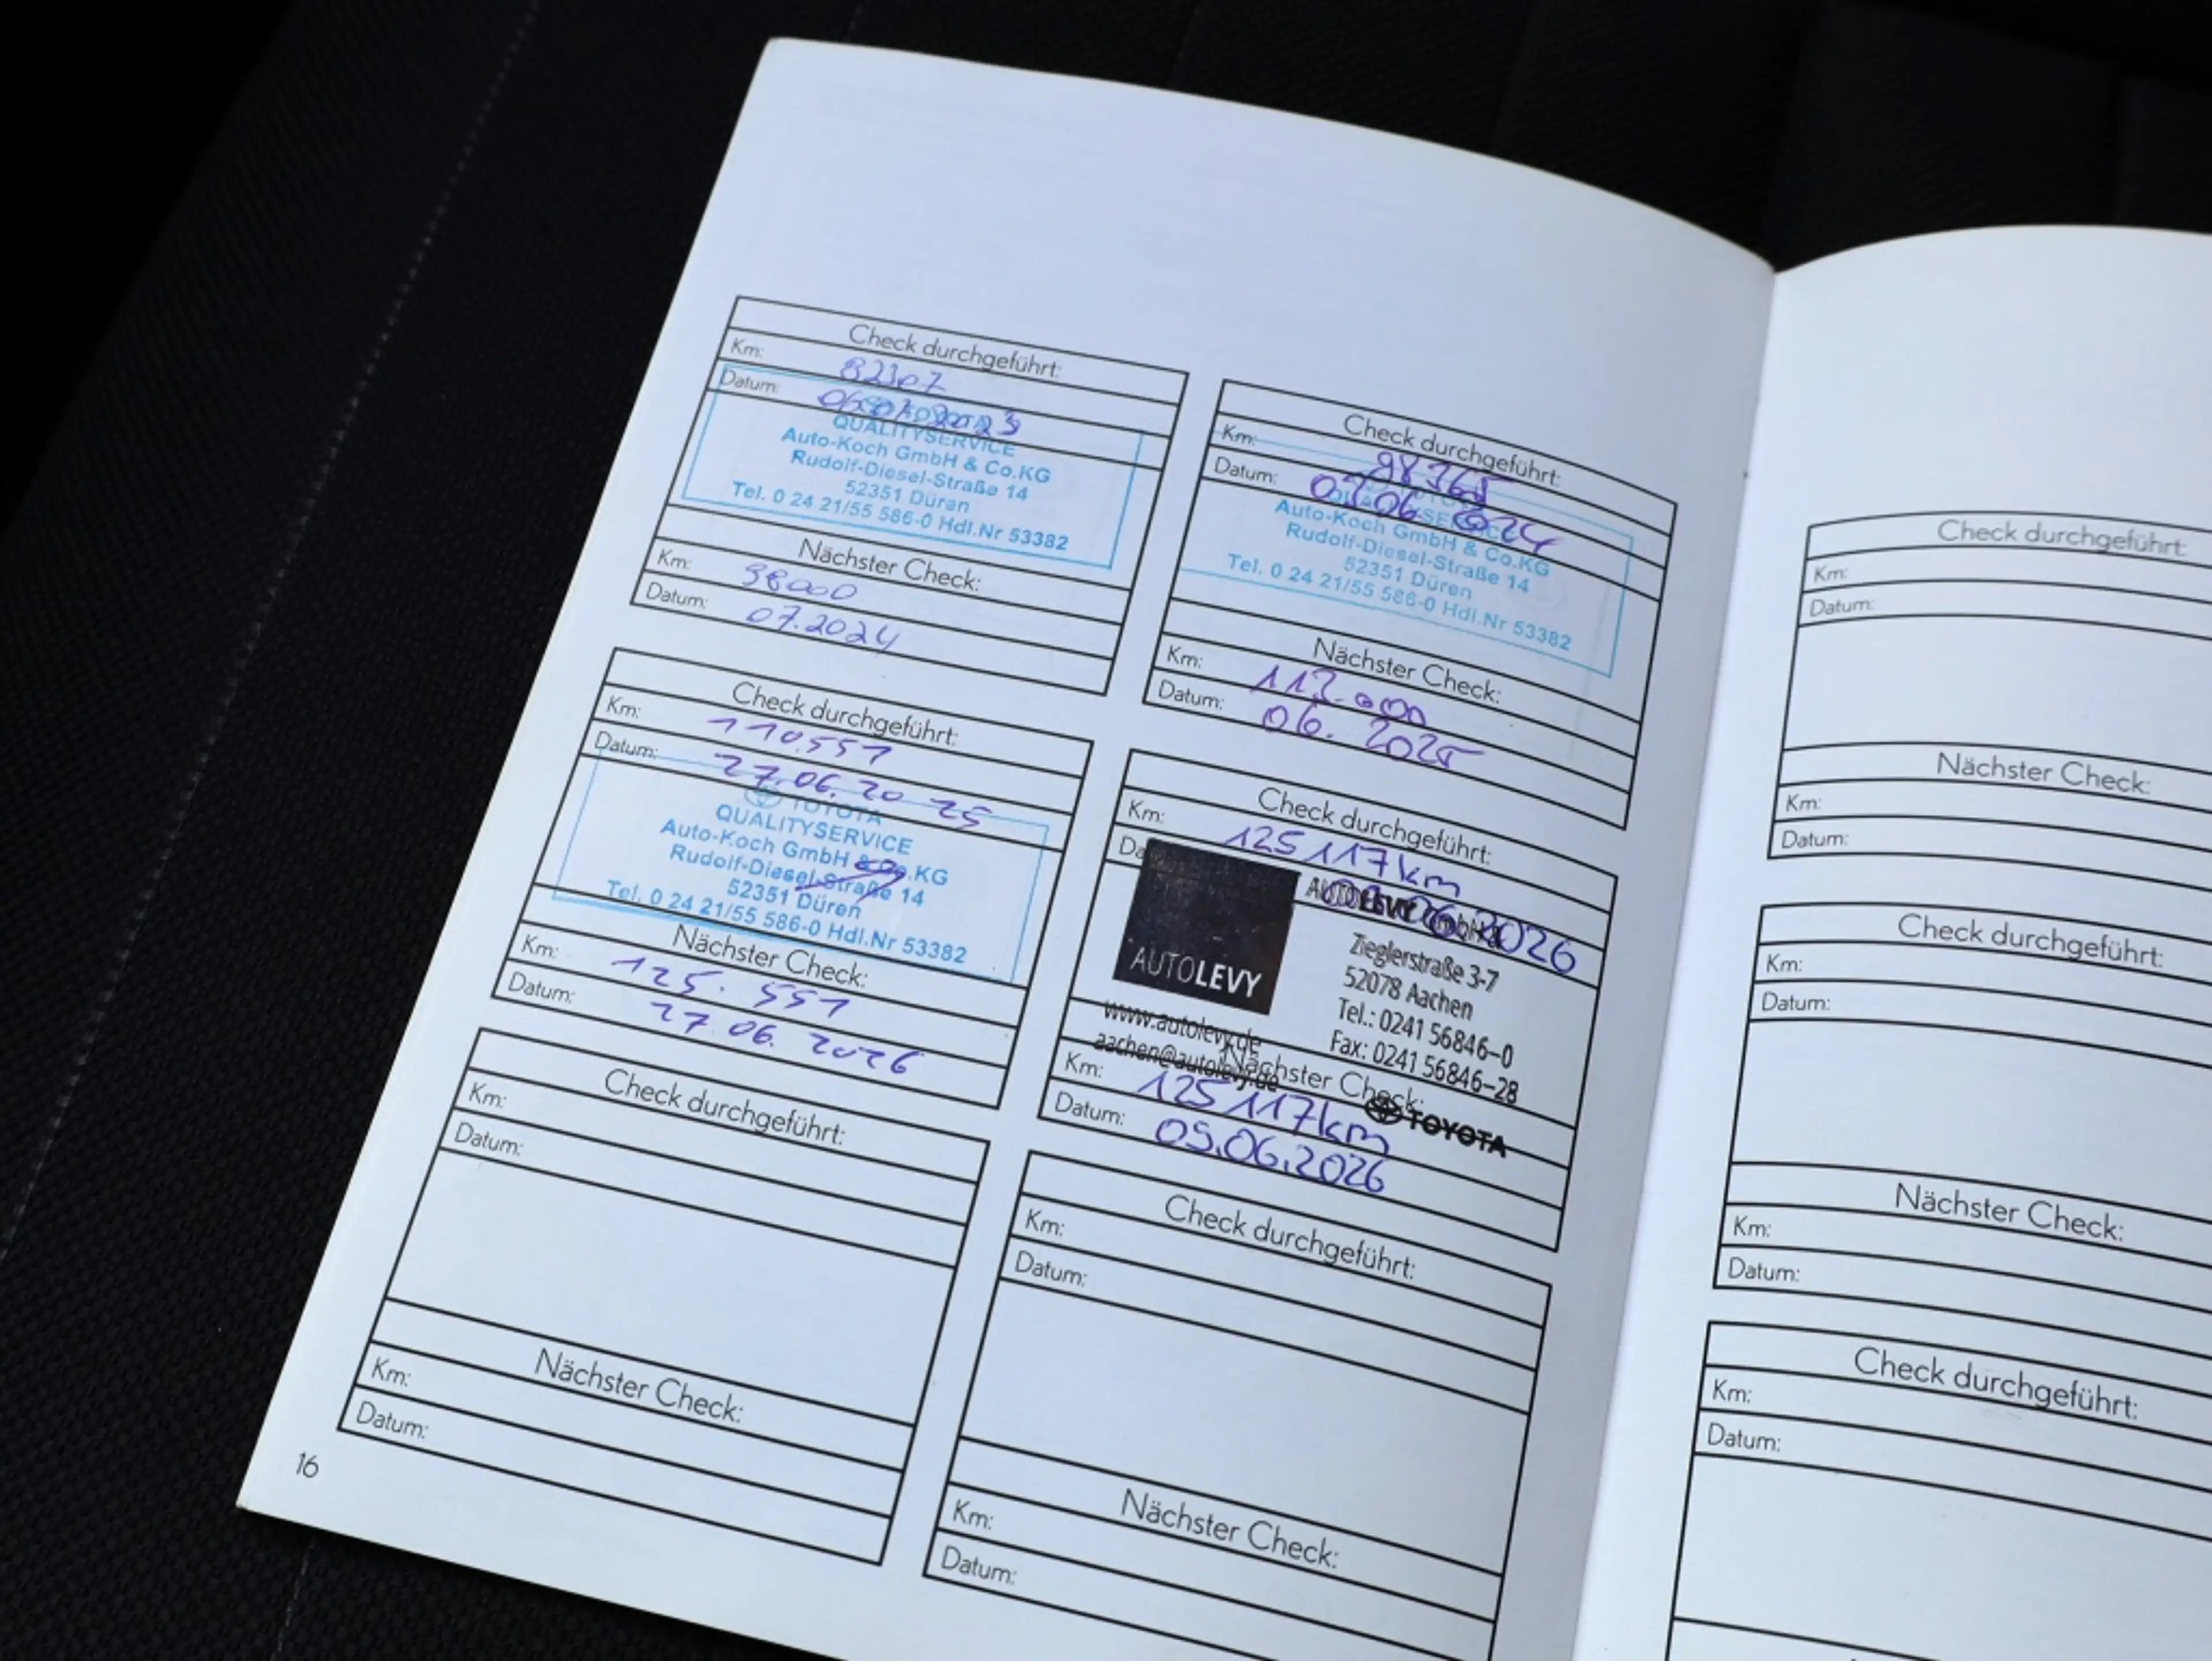 Check durchgeführt:
Km: 82307
Datum: 06.07.2023
QUALITYSERVICE
Auto-Koch GmbH & Co.KG
Rudolf-Diesel-Straße 14
52351 Düren
Tel. 0 24 21/55 586-0 Hdl.Nr 53382
Nächster Check:
Km: 98000
Datum: 07.2024
Check durchgeführt:
Km: 98365
Datum: 07.06.2024
Auto-Koch GmbH & Co.KG
Rudolf-Diesel-Straße 14
52351 Düren
Tel. 0 24 21/55 586-0 Hdl.Nr 53382
Nächster Check:
Km: 113.000
Datum: 06. 2025
Check durchgeführt:
Km: 110.551
Datum: 27.06.2025
TOYOTA
QUALITYSERVICE
Auto-Koch GmbH & Co.KG
Rudolf-Diesel-Straße 14
52351 Düren
Tel. 0 24 21/55 586-0 Hdl.Nr 53382
Nächster Check:
Km: 125.551
Datum: 27.06.2026
Check durchgeführt:
Km: 125117km
06.2026
AUTOLEVY
Zieglerstraße 3-7
52078 Aachen
Tel.: 0241 56846-0
Fax: 0241 56846-28
www.autolevy.de
aachen@autolevy.de
Nächster Check:
Km: 125117km
TOYOTA
Datum: 05.06.2026
Check durchgeführt:
Km:
Datum:
Nächster Check:
Km:
Datum:
Check durchgeführt:
Km:
Datum:
Nächster Check:
Km:
Datum:
16
Check durchgeführt:
Km:
Datum:
Nächster Check:
Km:
Datum:
Check durchgeführt:
Km:
Datum:
Nächster Check:
Km:
Datum:
Check durchgeführt:
Km:
Datum: